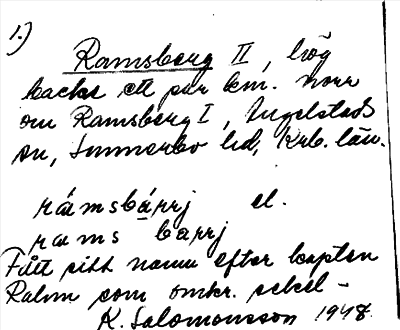 1.)
Ramsberg II, hög
backe ett par km. norr
om Ramsberg I, Ingelstads
sn, Sunnerbo hd, Krb. län.
rámsbárrj el.
rams barrj
Fått sitt namn efter kapten
Rahm som omkr. sekel-
K. Salomonsson 1948.